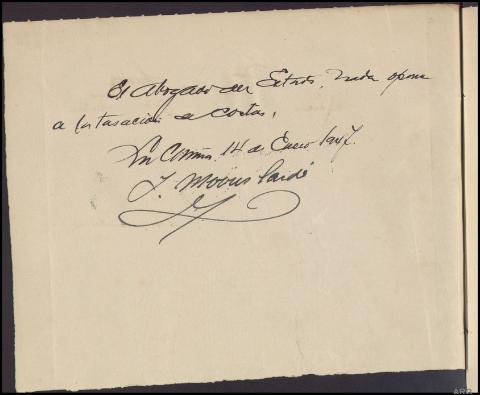 El Abogado del Estado, nada opone
a la tasación de costas.
La Coruña 14 de Enero 1947.
J.